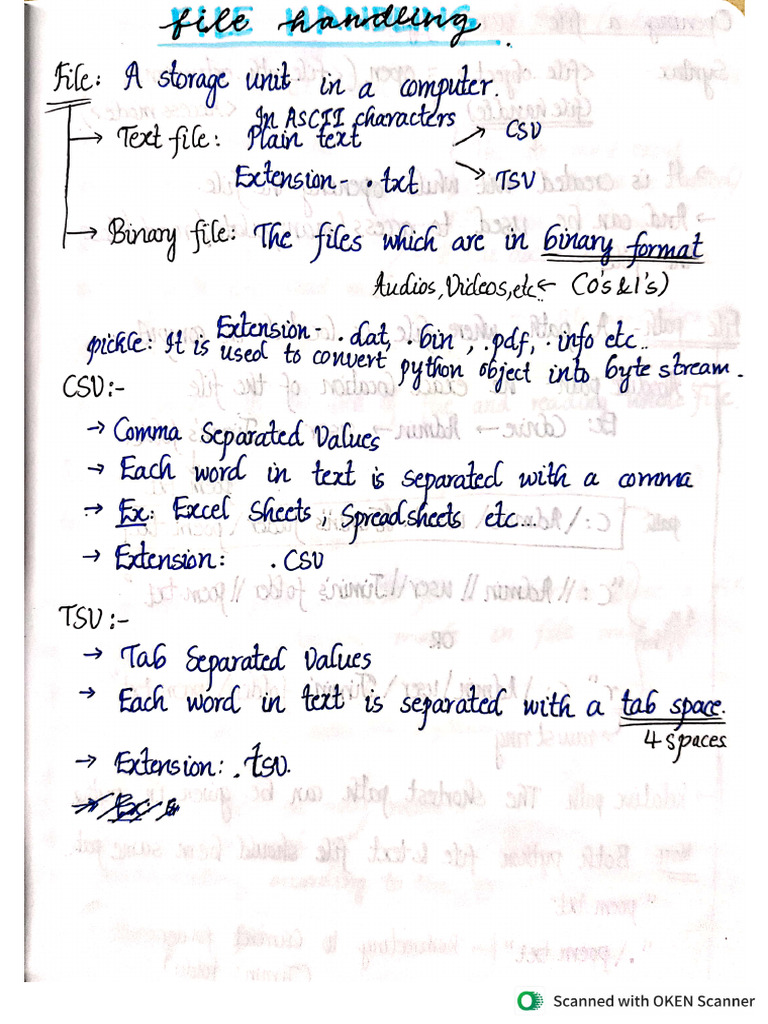 file handling.
File: A storage unit in a computer.
In ASCII characters
→ Text file: Plain text → CSV
Extension - .txt → TSV
→ Binary file: The files which are in binary format
Audios, Videos, etc ← (0's & 1's)
Extension - .dat, .bin, .pdf, .info etc..
pickle: It is used to convert python object into byte stream.
CSV:-
→ Comma Separated Values
→ Each word in text is separated with a comma
→ Ex: Excel Sheets, Spreadsheets etc...
→ Extension: .CSV
TSV:-
→ Tab Separated Values
→ Each word in text is separated with a tab space.
4 spaces
→ Extension: .tsv.
Scanned with OKEN Scanner